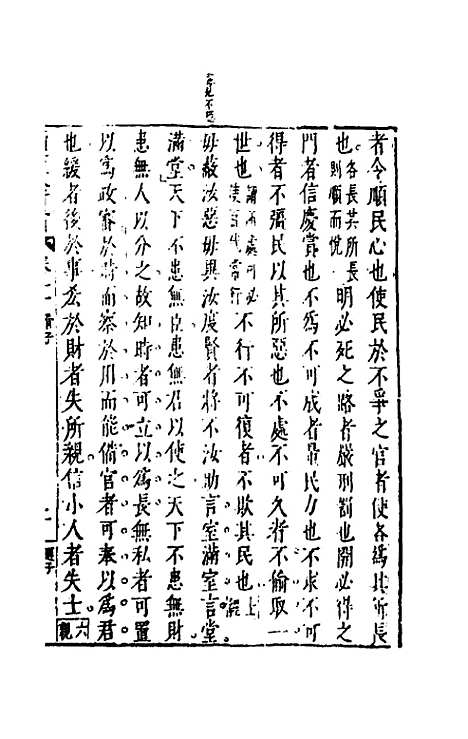 者令順民心也使民於不爭之官者使各爲其所長
也各長其所長則順而悅明必死之路者嚴刑罰也開必得之
門者信慶賞也不爲不可成者量民力也不求不可
得者不彊民以其所惡也不處不可久者不偷取一
世也不行不可復者不欺其民也
毋蔽汝惡毋異汝度賢者將不汝助言室滿室言堂
滿堂天下不患無臣患無君以使之天下不患無財
患無人以分之故知時者可立以爲長無私者可置
以爲政審於時而察於用而能備官者可奉以爲君
也緩者後於事吝於財者失所親信小人者失士
六親